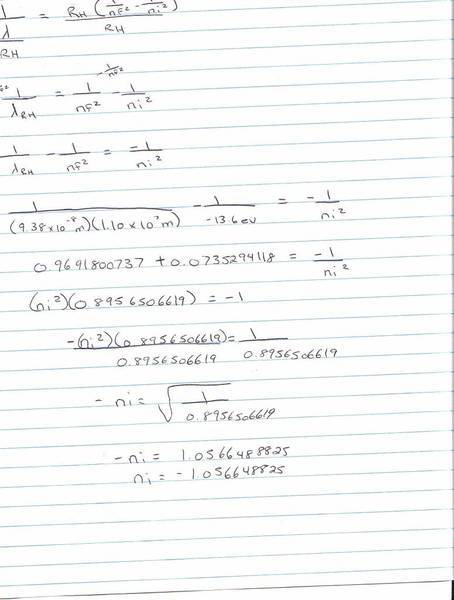 1/λ / RH = RH (1/nf² - 1/ni²) / RH
1/λRH = 1/nf² - 1/ni² - 1/nf²
1/λRH - 1/nf² = -1/ni²
1/(9.38 x 10⁻⁸ m)(1.10 x 10⁷ m) - 1/-13.6 eV = - 1/ni²
0.9691800737 + 0.0735294118 = -1/ni²
(ni²)(0.8956506619) = -1
-(ni²)(0.8956506619)/0.8956506619 = 1/0.8956506619
- ni = √(1/0.8956506619)
-ni = 1.0566488825
ni = -1.056648825